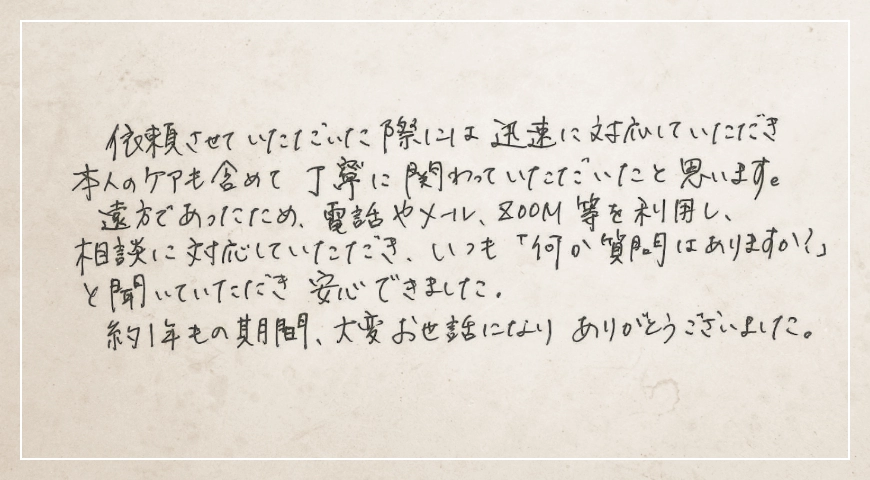 依頼させていただいた際には 迅速に対応していただき
本人のケアも含めて 丁寧に関わっていただいたと思います。
遠方であったため、電話やメール、ZOOM等を利用し、
相談に対応していただき、いつも「何か質問はありますか?」
と聞いていただき 安心できました。
約1年もの期間、大変お世話になり ありがとうございました。